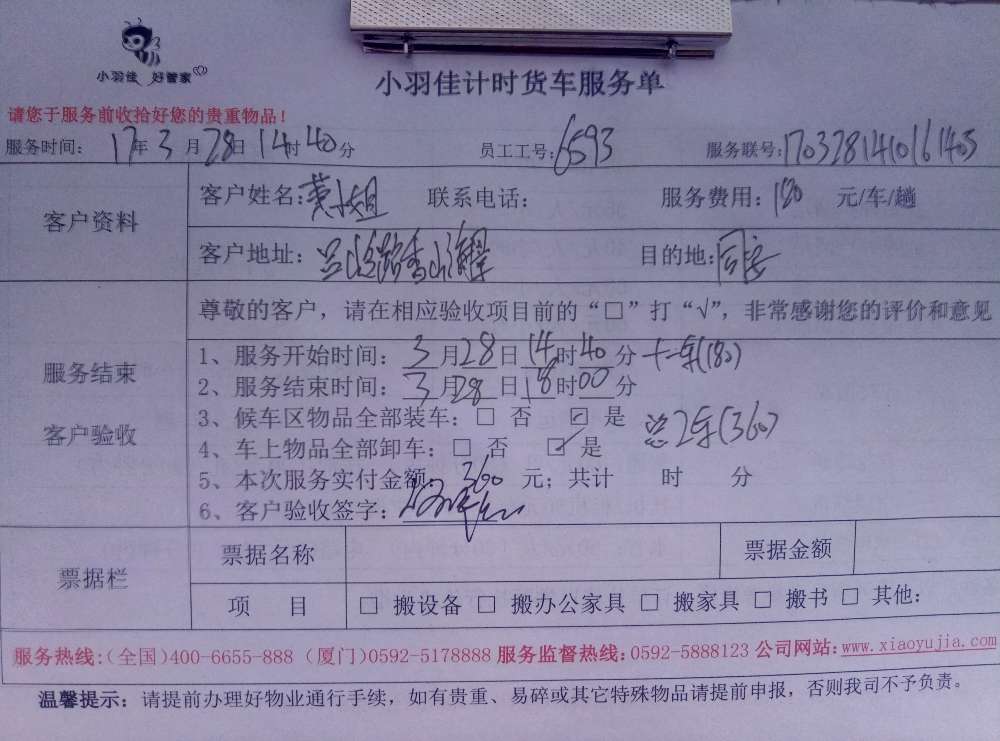 小羽佳 好管家
小羽佳计时货车服务单
请您于服务前收拾好您的贵重物品！
服务时间: 17年3月28日14时40分 员工工号: 6593 服务联号: 1703281410161405
客户资料
客户姓名: 黄小姐 联系电话: 服务费用: 180 元/车/趟
客户地址: 吕岭路香山 目的地: 同安
尊敬的客户，请在相应验收项目前的“□”打“√”，非常感谢您的评价和意见
服务结束
客户验收
1、服务开始时间: 3月28日14时40分 十一车(180)
2、服务结束时间: 3月28日18时00分
3、候车区物品全部装车: □ 否 ☑ 是 总2车(360)
4、车上物品全部卸车: □ 否 ☑ 是
5、本次服务实付金额: 360 元; 共计 时 分
6、客户验收签字:
票据栏
票据名称 票据金额
项 目 □ 搬设备 □ 搬办公家具 □ 搬家具 □ 搬书 □ 其他:
服务热线:(全国)400-6655-888 (厦门)0592-5178888 服务监督热线: 0592-5888123 公司网站: www.xiaoyujia.com
温馨提示: 请提前办理好物业通行手续，如有贵重、易碎或其它特殊物品请提前申报，否则我司不予负责。